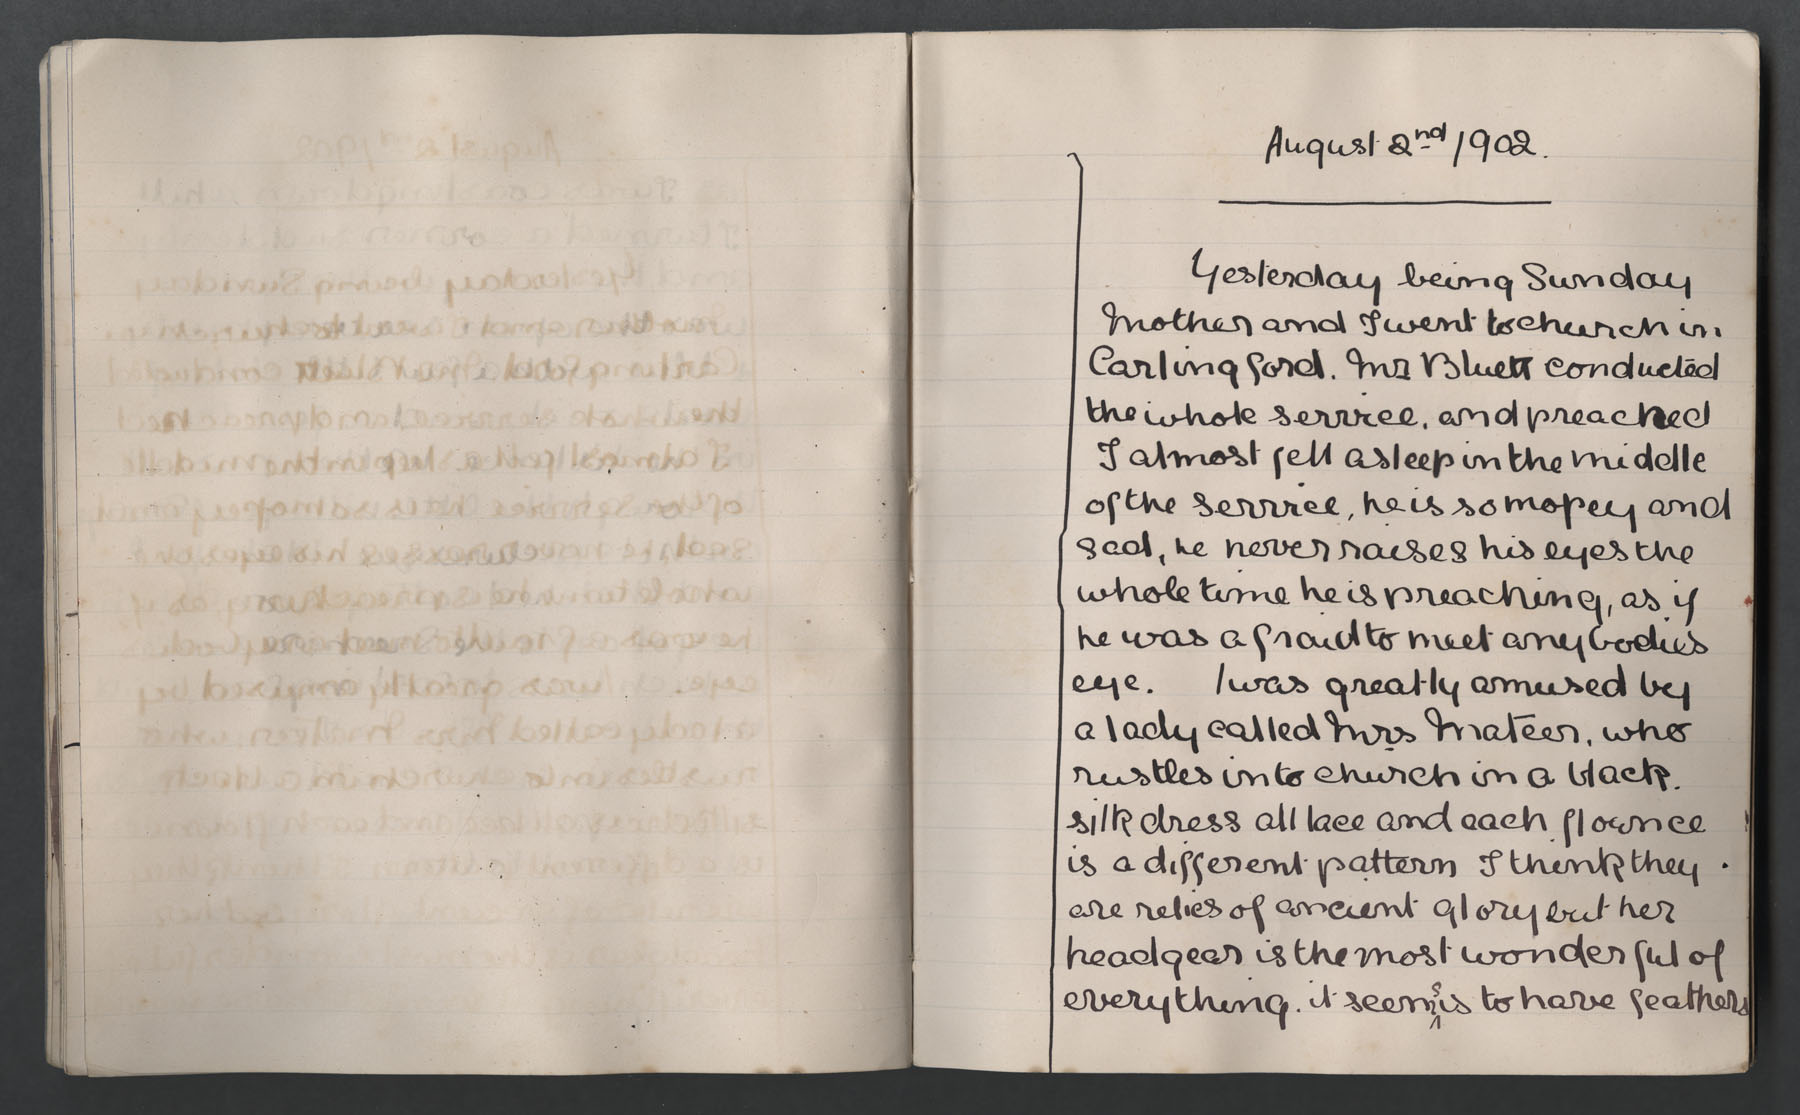 August 2nd 1902.
Yesterday being Sunday
Mother and I went to church in
Carlingford. Mr Bluett conducted
the whole service, and preached
I almost fell asleep in the middle
of the service, he is so mopey and
sad, he never raises his eyes the
whole time he is preaching, as if
he was afraid to meet anybodies
eye. I was greatly amused by
a lady called Mrs Mateer, who
rustles into church in a black.
silk dress all lace and each flounce
is a different pattern I think they
are relics of ancient glory but her
headgear is the most wonderful of
everything. it seems to have feathers